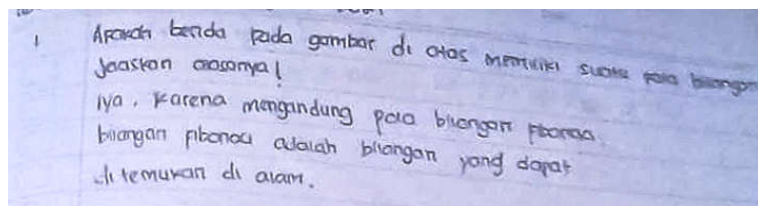 1 Apakah benda pada gambar di atas memiliki suatu pola bilangan
Jelaskan alasannya!
iya, Karena mengandung pola bilangan fibonaci.
bilangan fibonaci adalah bilangan yang dapat
di temukan di alam.